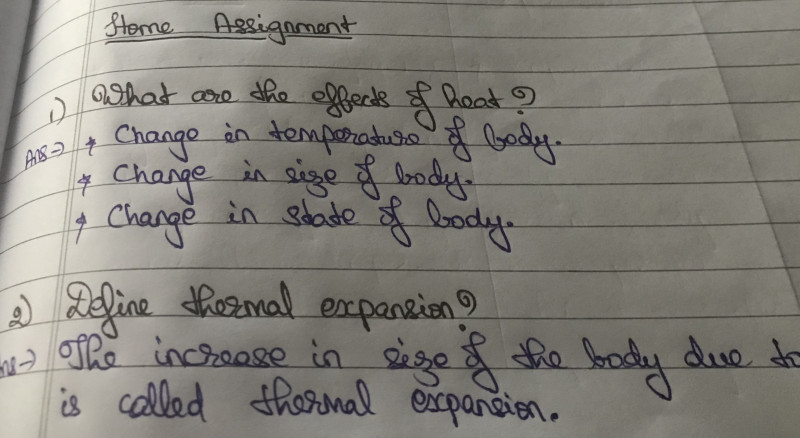 Home Assignment
1) What are the effects of heat?
Ans → * Change in temperature of body.
* Change in size of body.
* Change in state of body.
2) Define thermal expansion?
ns → The increase in size of the body due to
is called thermal expansion.